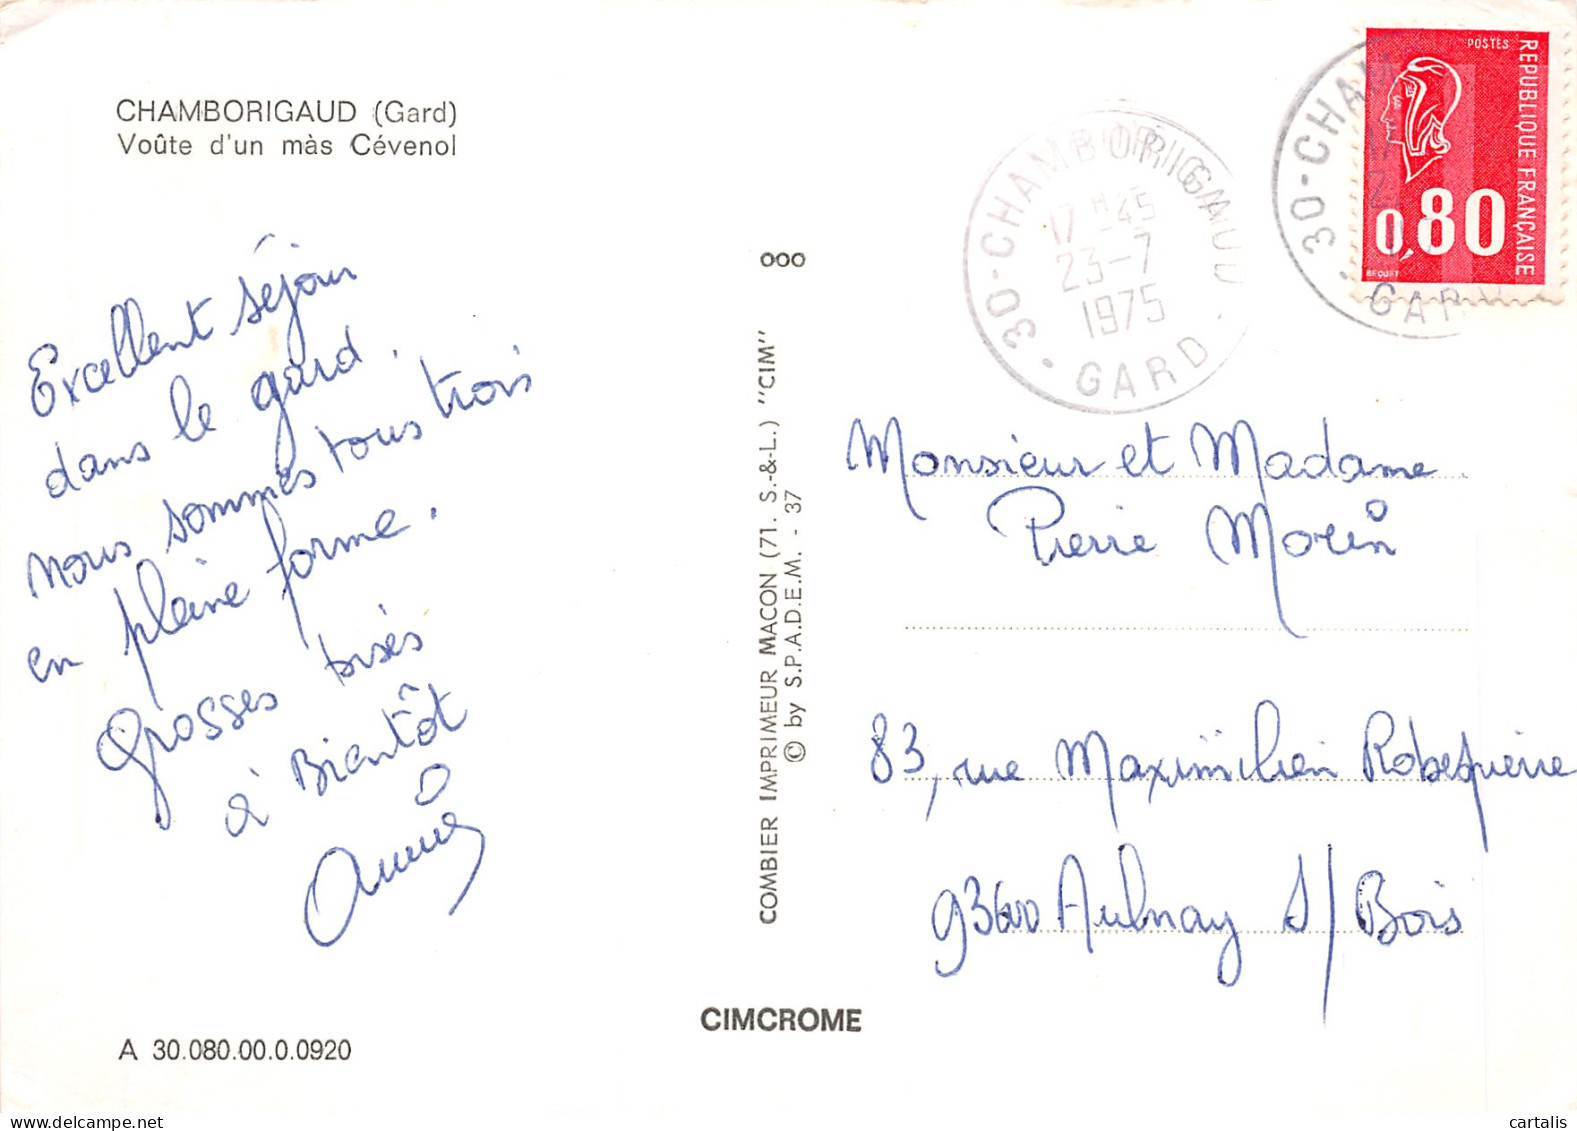 CHAMBORIGAUD (Gard)
Voûte d'un màs Cévenol
Excellent séjour
dans le gard.
nous sommes tous trois
en plaine forme.
Grosses bisés
à Bientôt
ooo
COMBIER IMPRIMEUR MACON (71. S.-&-L.) "CIM"
© by S.P.A.D.E.M. - 37
CIMCROME
A 30.080.00.0.0920
30-CHAMBORIGAUD
17 H 45
23-7
1975
GARD
30-CHAM
GARD
POSTES
REPUBLIQUE FRANÇAISE
0,80
BEQUET
Monsieur et Madame
Pierre Morin
83, rue Maximilien Robespierre
93600 Aulnay S/Bois
cartalis